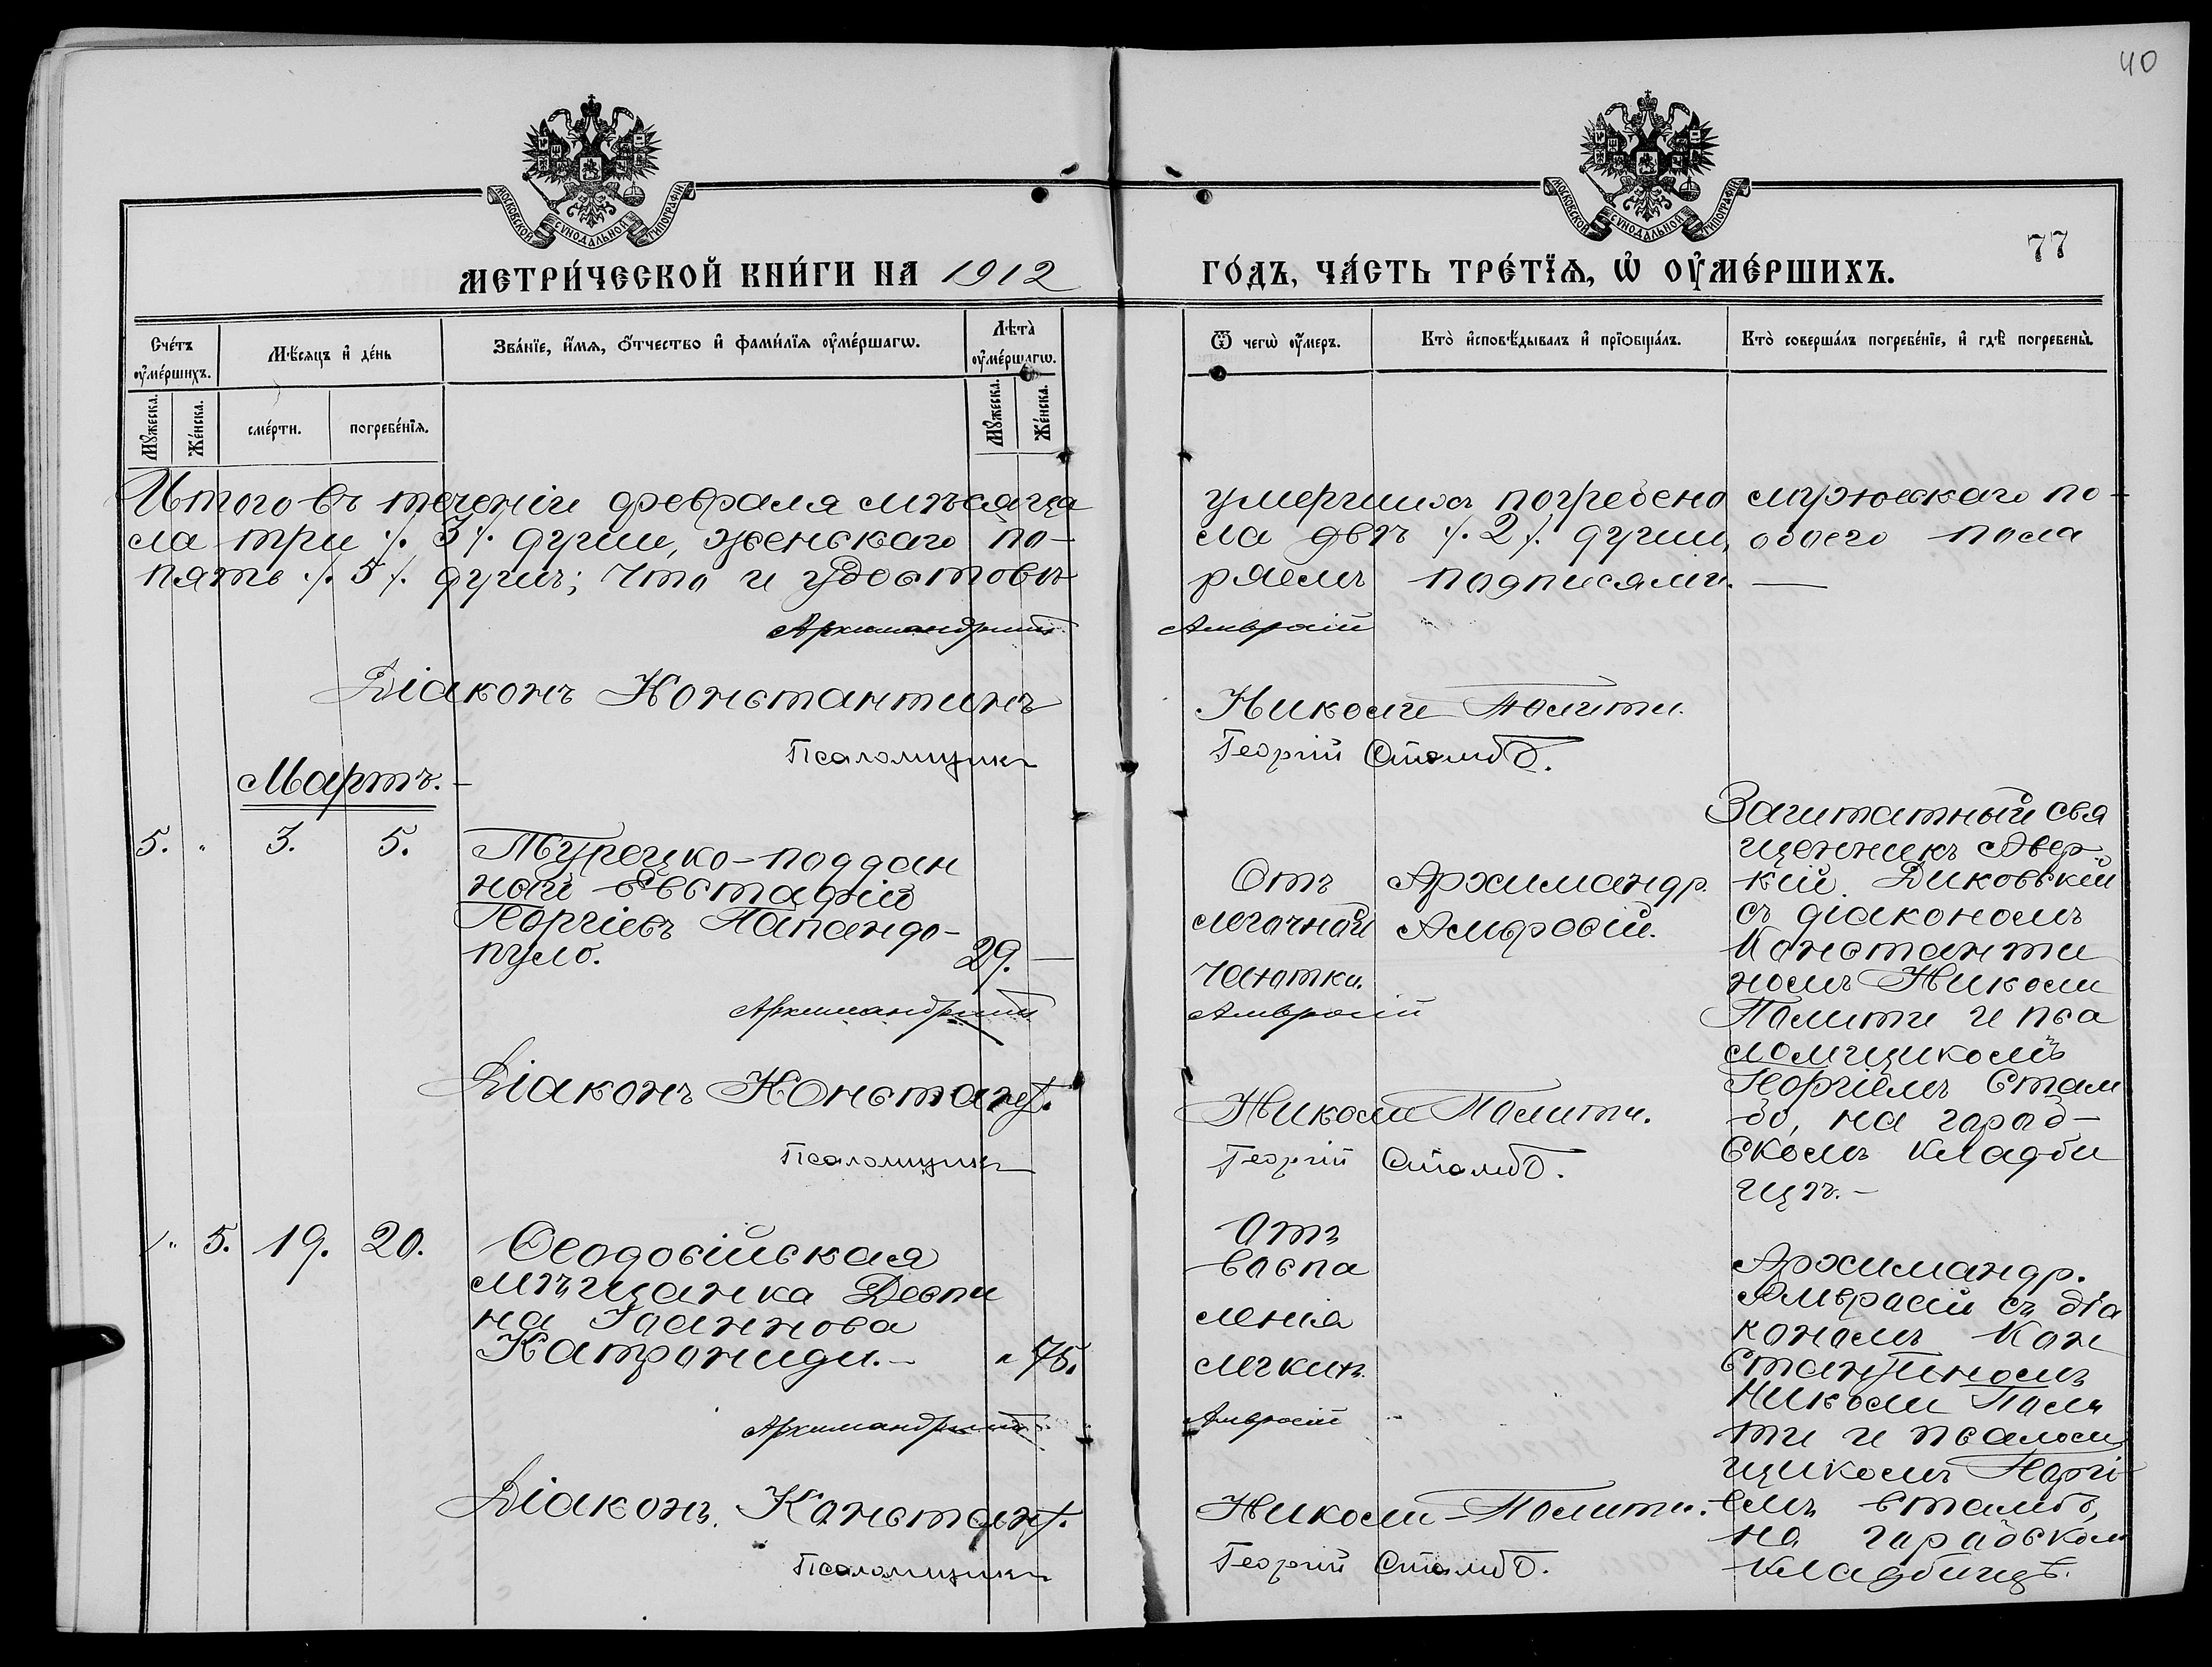 40
МОСКОВСКОЙ СѴНОДАЛЬНОЙ ТИПОГРАФІИ
МОСКОВСКОЙ СѴНОДАЛЬНОЙ ТИПОГРАФІИ
77
МЕТРИ́ЧЕСКОЙ КНИ́ГИ НА 1912 ГО́ДЪ, ЧА́СТЬ ТРЕ́ТЇѦ, Ѡ҆ ОУ҆МЕ́РШИХЪ.
Сче́тъ оу҆ме́ршихъ.
Мѣ́сяцъ и҆ де́нь
Зва́нїе, и҆́мѧ, ѻ҆́тчество и҆ фами́лїѧ оу҆ме́ршагѡ.
Лѣта̀ оу҆ме́ршагѡ.
Ѿ чегѡ̀ оу҆́меръ.
Кто̀ и҆сповѣ́дывалъ и҆ прїѡбща́лъ.
Кто̀ соверша́лъ погребе́нїе, и҆ гдѣ̀ погребены̀.
Мꙋ́жеска.
Же́нска.
сме́рти.
погребе́нїѧ.
Мꙋ́жеска.
Же́нска.
Итого въ теченіи февраля мѣсяца умершихъ погребено мужескаго по-
ла три ./. 3 /. души, женскаго по- ла двѣ ./. 2 /. души, обоего пола
пять ./. 5 /. душъ; что и удостовѣ ряемъ подписями. —
Архимандритъ Амвросій
Діаконъ Константинъ Николи Полити.
Псаломщикъ Георгій Стамбо.
Мартъ. -
5. " 3. 5.
Турецко-поддан
ный Евстафій
Георгіевъ Папандо-
пуло. 29. —
Отъ
легочной
чахотки.
Архимандр.
Амвросій.
Заштатный свя
щенникъ Авер-
кій Диковскій
съ діакономъ
Константи
номъ Николи
Полити и пса
ломщикомъ
Георгіемъ Стам
бо, на город-
скомъ кладби
щѣ. -
Архимандритъ Амвросій
Діаконъ Констант. Николи Полити.
Псаломщикъ Георгій Стамбо.
" 5. 19. 20.
Ѳеодосійская
мѣщанка Деспи
на Іоаннова
Катрониди. - " 75.
Отъ
воспа
ленія
легкихъ.
Архимандр.
Амвросій съ діа
кономъ Кон
стантиномъ
Николи Поли
ти и псалом
щикомъ Георгі
емъ Стамбо,
на городском
кладбищѣ.
Архимандритъ Амвросій
Діаконъ Констант. Николи Полити.
Псаломщикъ Георгій Стамбо.